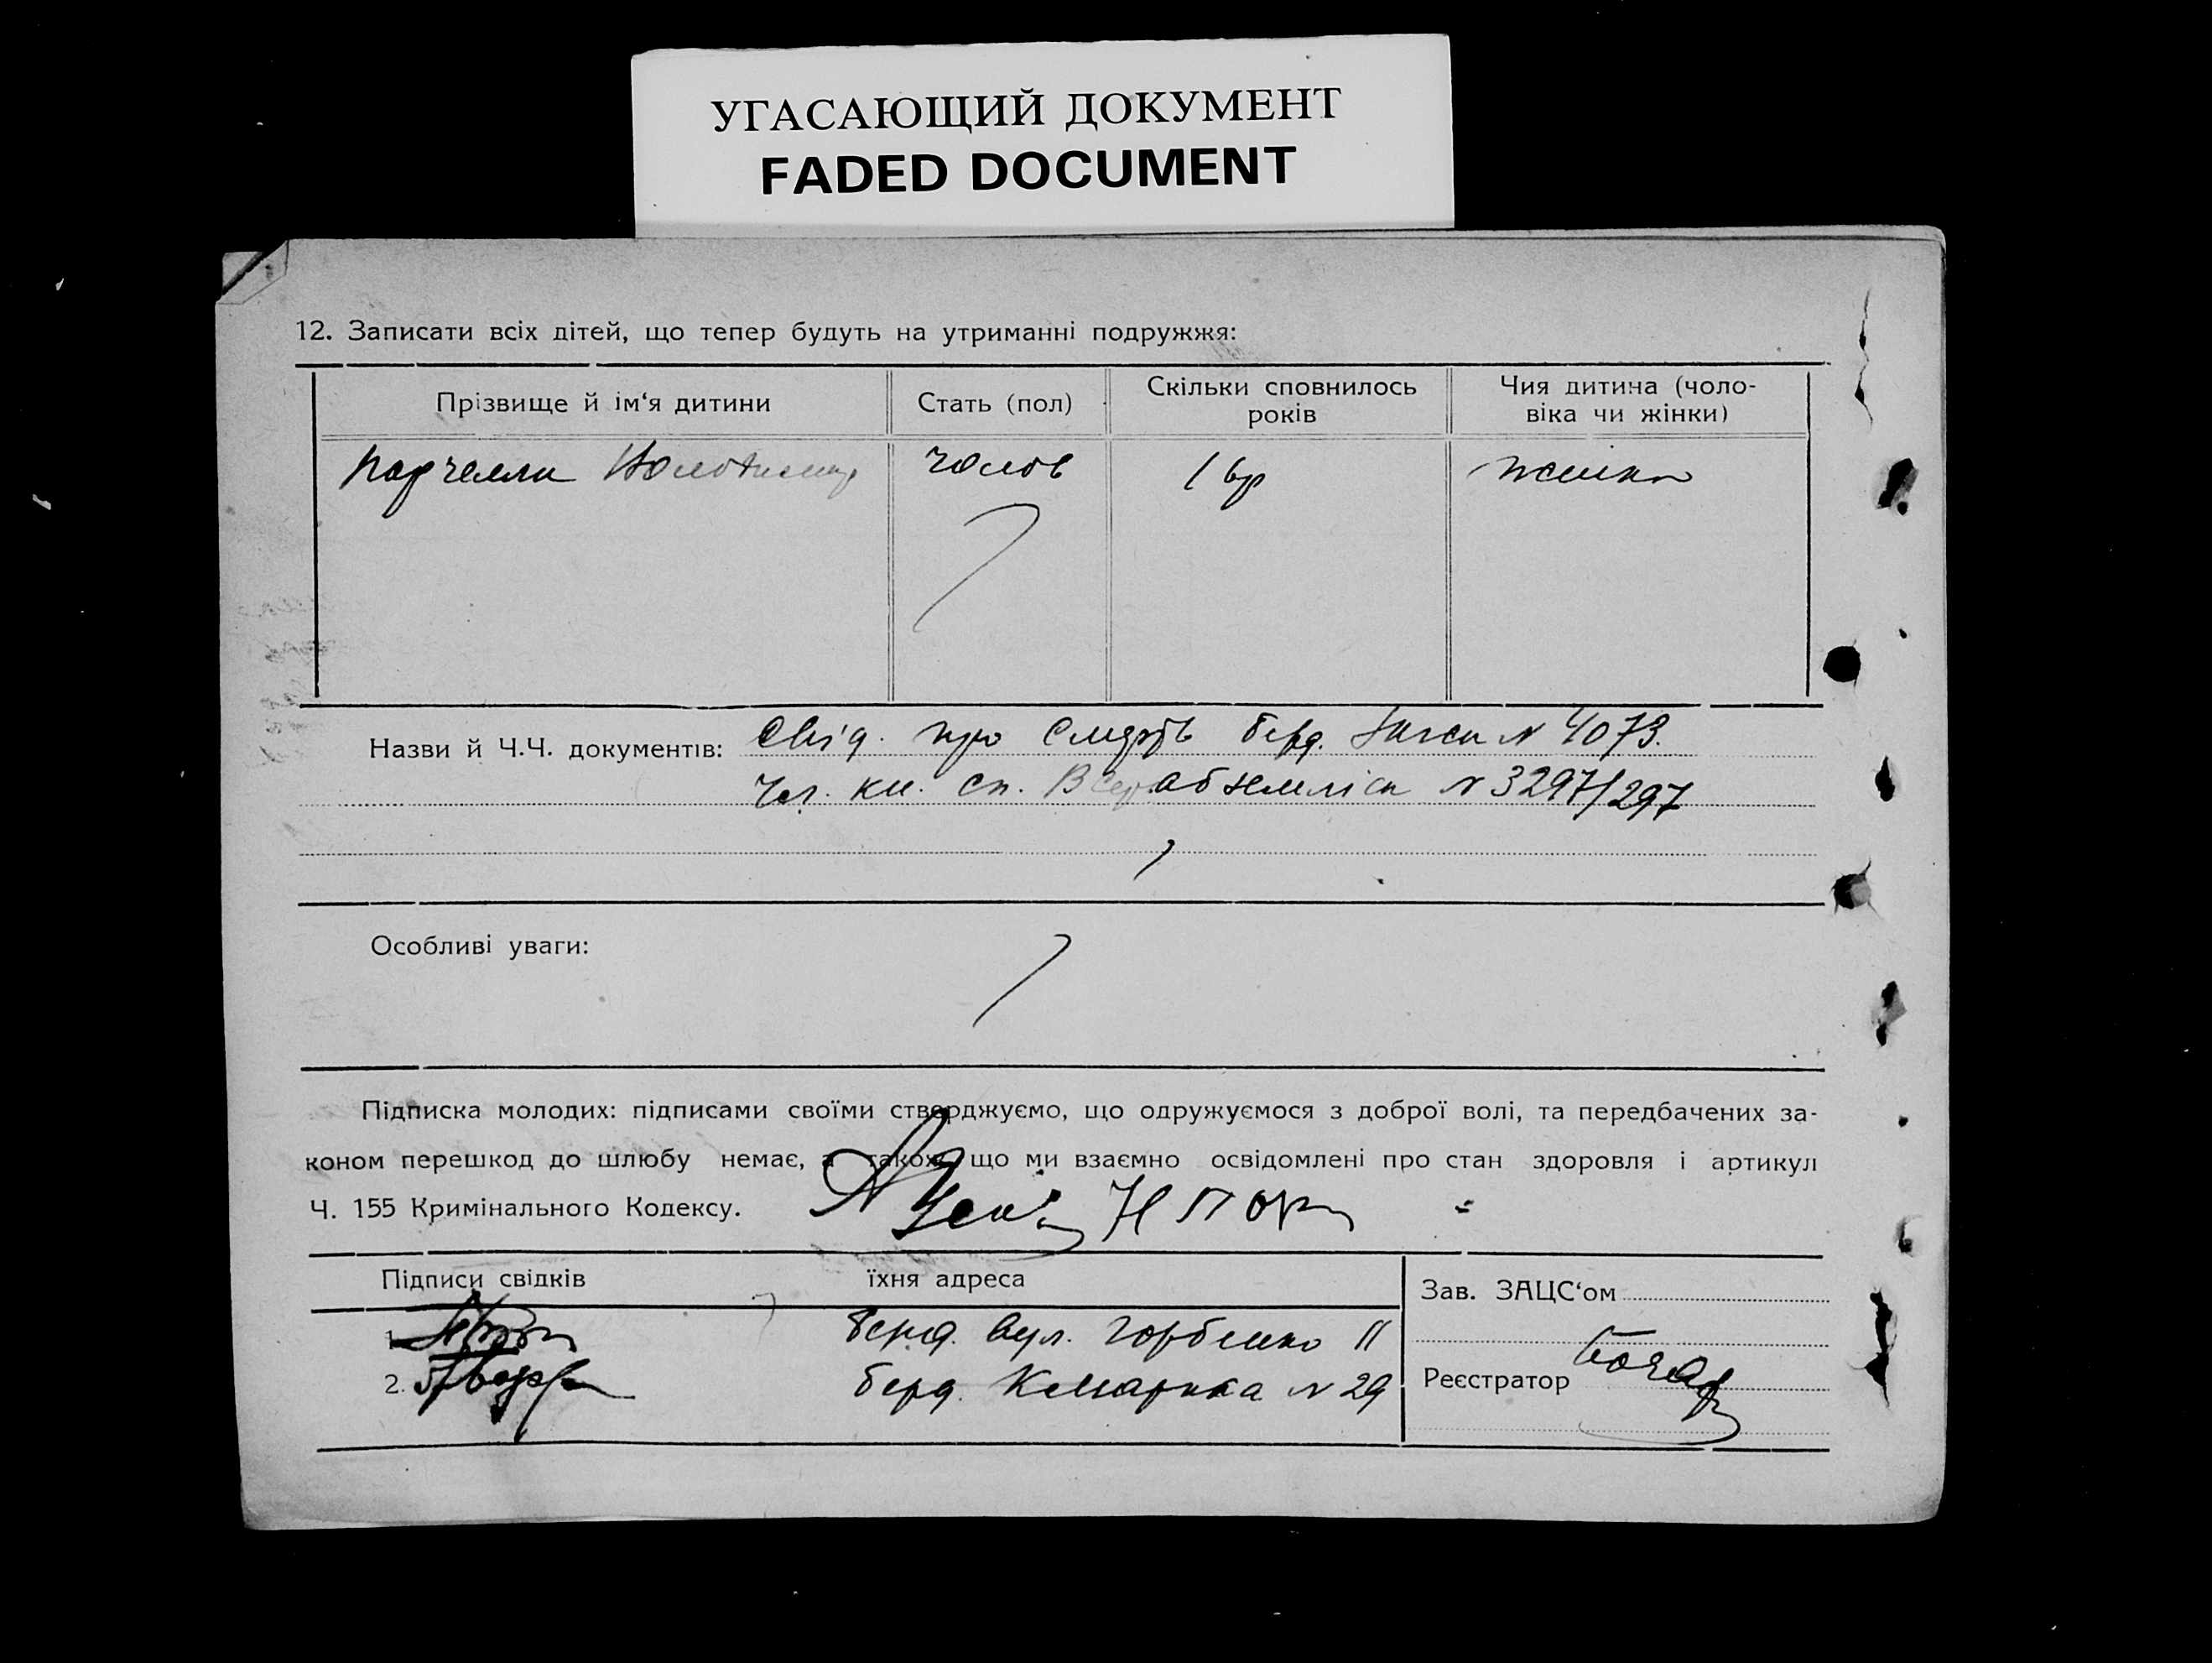 УГАСАЮЩИЙ ДОКУМЕНТ
FADED DOCUMENT
12. Записати всіх дітей, що тепер будуть на утриманні подружжя:
Прізвище й ім‘я дитини
Стать (пол)
Скільки сповнилось
років
Чия дитина (чоло-
віка чи жінки)
чолов
Назви й Ч.Ч. документів: Свід. про смерть берд. № 4073.
Чл. кн. сп. Всеробземліса № 3297/297
Особливі уваги:
Підписка молодих: підписами своїми стверджуємо, що одружуємося з доброї волі, та передбачених за-
коном перешкод до шлюбу немає, а також, що ми взаємно освідомлені про стан здоровля і артикул
Ч. 155 Кримінального Кодексу.
Підписи свідків
їхня адреса
Зав. ЗАЦС‘ом
1.
Берд. вул. Горбенко 11
2.
берд. № 29
Реєстратор